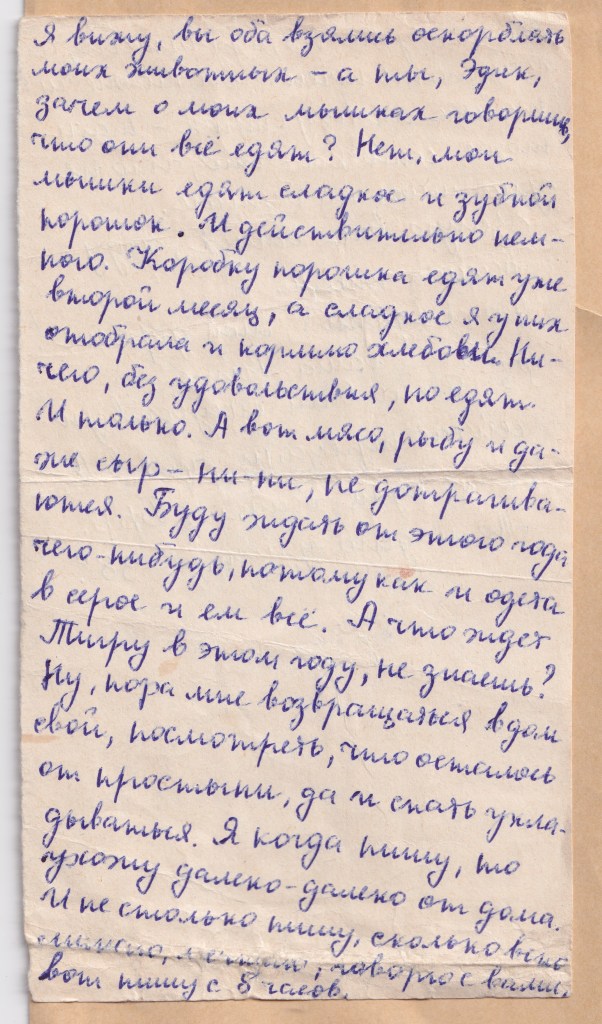 Я вижу, вы оба взялись оскорблять
моих животных – а ты, Эдик,
зачем о моих мышках говоришь,
что они всё едят? Нет, мои
мышки едят сладкое и зубной
порошок. И действительно нем-
ного. Коробку порошка едят уже
второй месяц, а сладкое я у них
отобрала и кормлю хлебом. Ни-
чего, без удовольствия, но едят.
И только. А вот мясо, рыбу и да-
же сыр – ни-ни, не дотрагива-
ются. Буду ждать от этого года
чего-нибудь, потому как и одета
в серое и ем всё. А что ждет
Тигру в этом году, не знаешь?
Ну, пора мне возвращаться в дом
свой, посмотреть, что осталось
от простыни, да и спать укла-
дываться. Я когда пишу, то
ухожу далеко-далеко от дома.
И не столько пишу, сколько вспо
минаю, мечтаю, говорю с вами,
вот пишу с 8 часов.